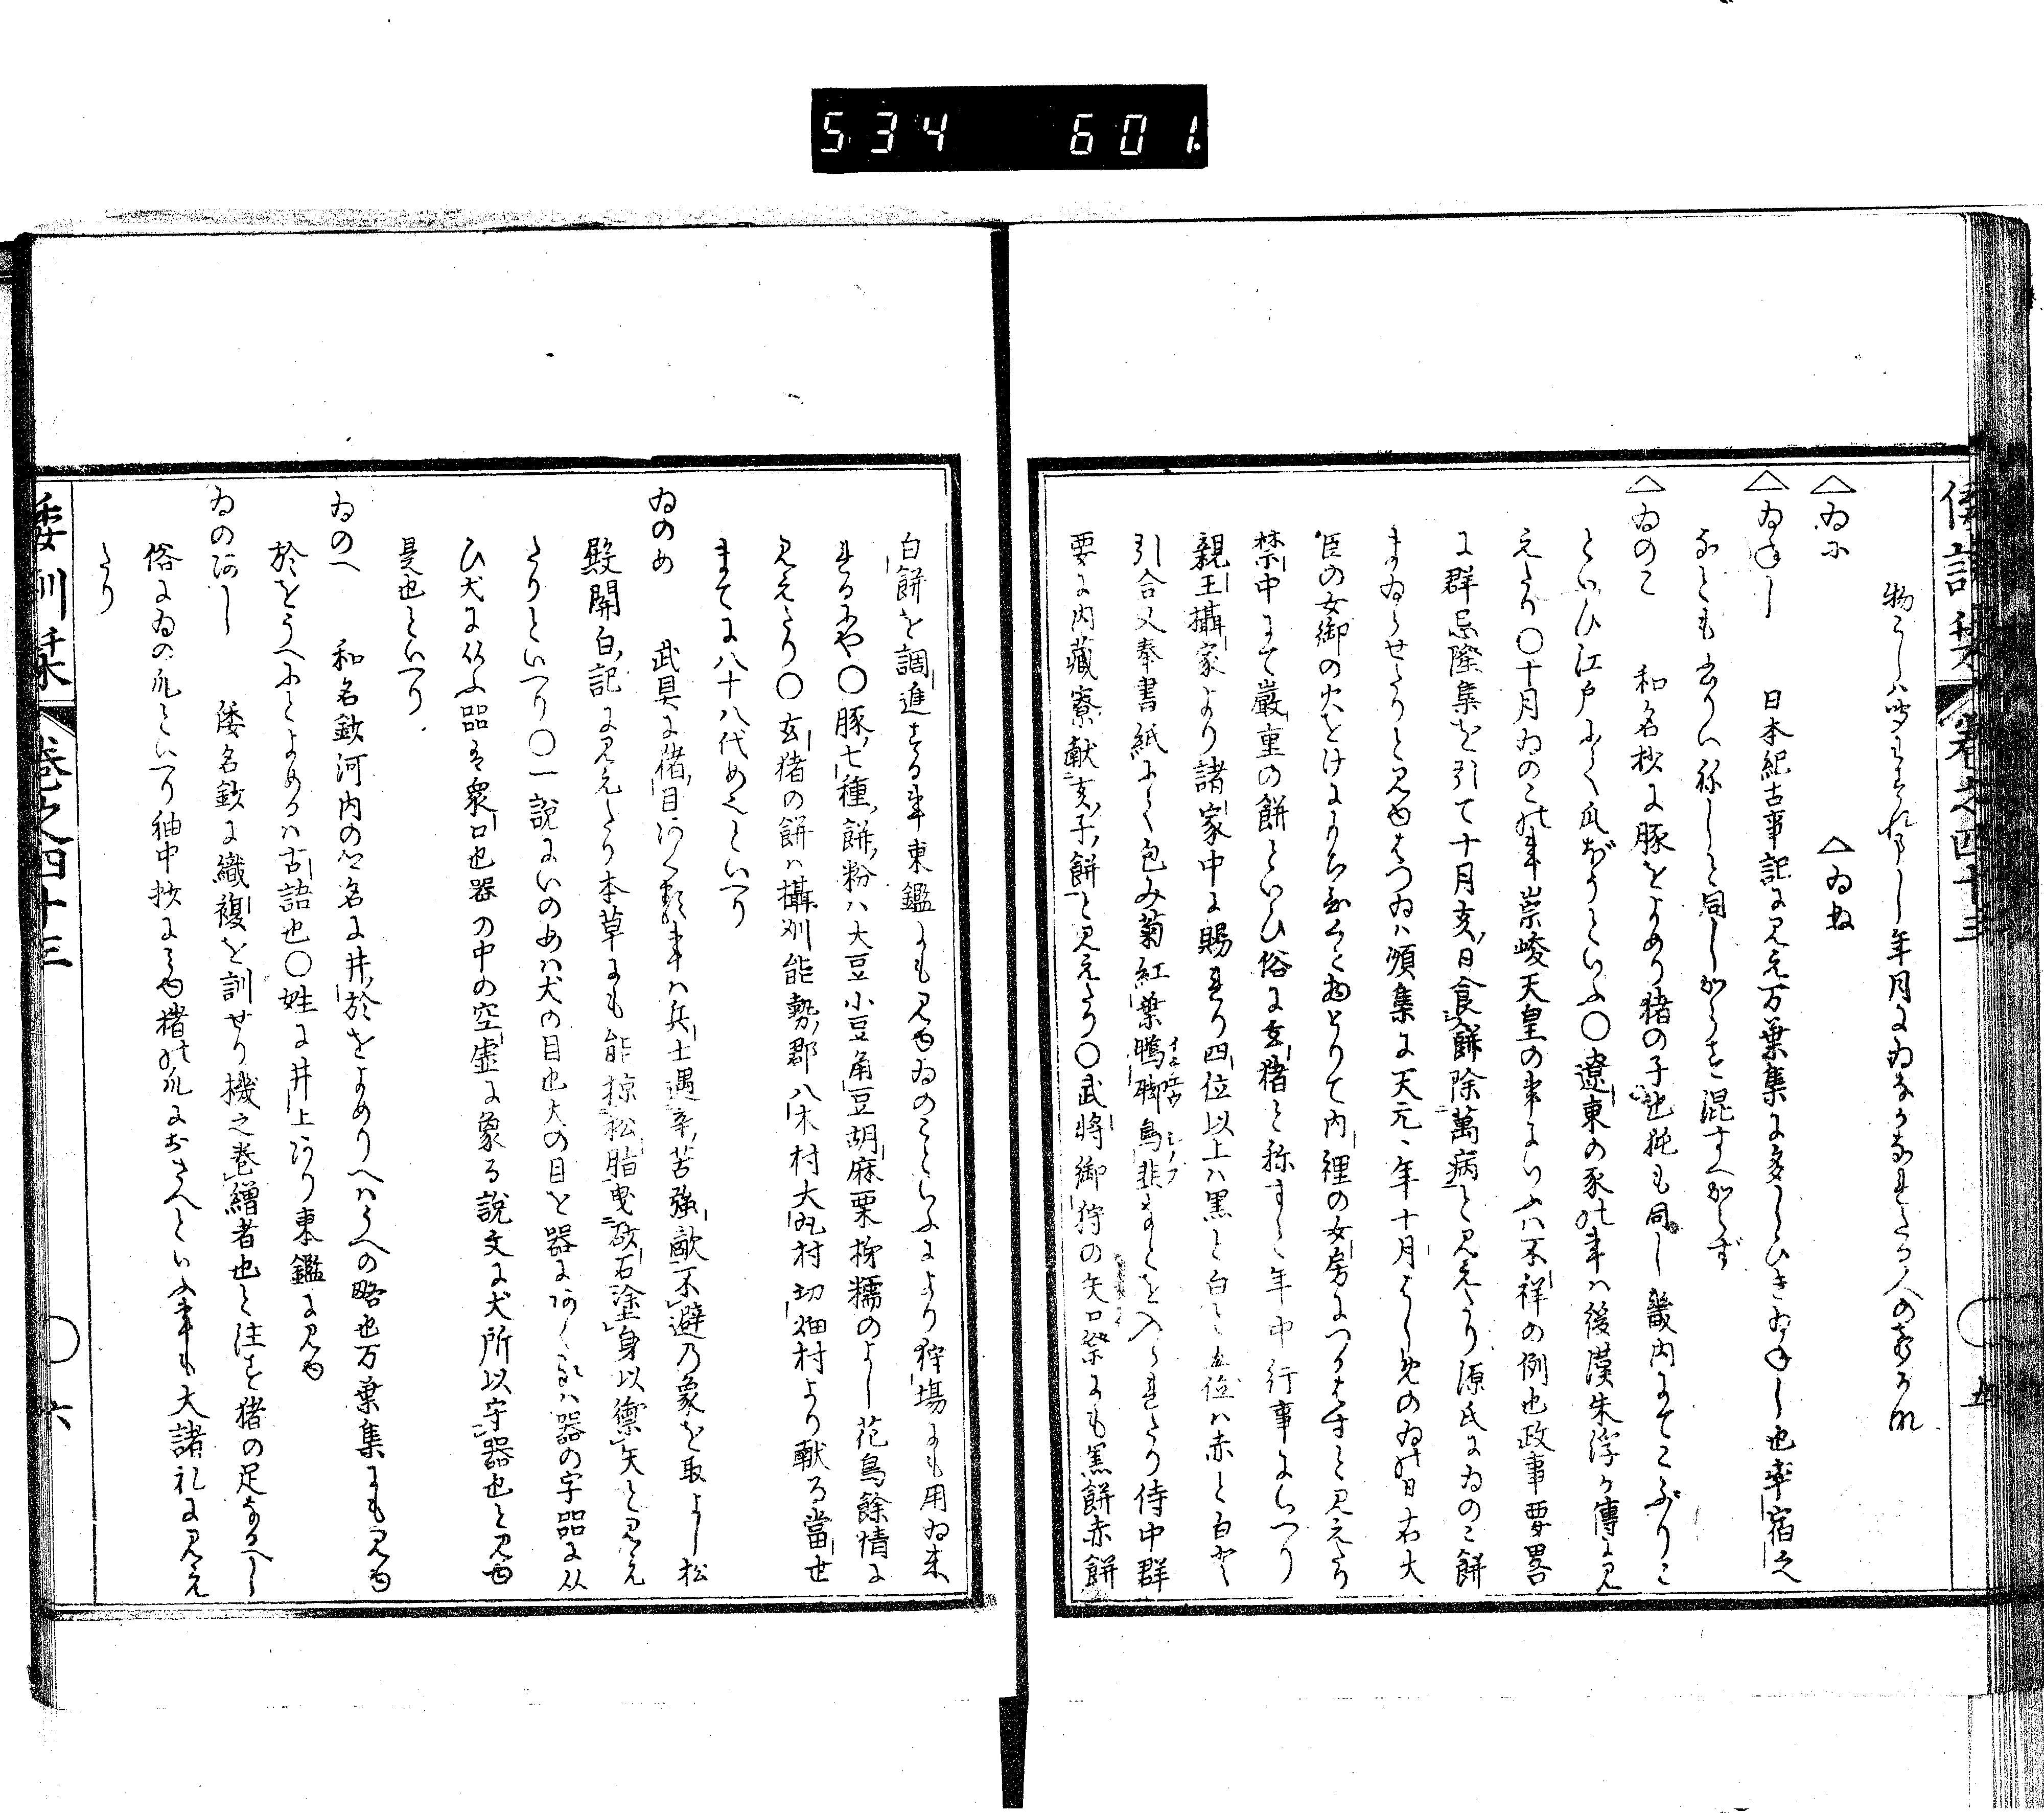 534 601
倭訓栞 巻之四十三 五
物こしハ皆わすれにし年月にゐなかなれたる人の
△ゐに △ゐぬ
△ゐねし 日本紀古事記に見え万葉集に多しひきゐねし也率宿之
なとも書りい称しと同しからす混すへからず
△ゐのこ 和名抄に豚をよめり猪の子也㹠も同し畿内にてこぶりこ
といひ江戸にて瓜ばうといふ〇遼東の豕の事ハ後漢朱浮か傳に見
えたり〇十月ゐのこの事崇峻天皇の事にいふハ不祥の例也政事要畧
に群忌隆集を引て十月亥日食餅除萬病と見えたり源氏にゐのこ餅
まゐらせたりと見ゆ 順集に天元二年十月はしめのゐの日右大
臣の女御の火をけに とりて内裡の女房につかはすと見えたり
禁中にて嚴重の餅といひ俗に玄猪と称すと年中行事にいへり
親王攝家より諸家中に賜ハり四位以上ハ黒と白と五位ハ赤と白
引合又奉書紙にて包み菊紅葉鴨脚イチヤウ鳥韭シノブなとを入られたり侍中群
要に内藏寮献亥子餅と見えたり〇武將御狩の矢口祭にも黒餅赤餅
白餅を調進する事東鑑にも見ゆゐのこといふにより狩場にも用ゐ来
れるにや〇豚七種餅粉ハ大豆小豆角豆胡麻栗柿糯のよし花鳥餘情に
見えたり〇玄猪の餅ハ攝刕能勢郡八木村大丸村切畑村より献る當世
まてに八十八代めと といへり
ゐのめ 武具に猪目 事ハ兵士遇辛苦強敵不避乃象を取よし松
殿関白記に見えたり本草にも能掠松脂曳砂石塗身以禦矢と見え
たりといへり〇一説にいのめハ犬の目也犬の目を器に ハ器の字㗊に从
ひ犬に从ふ㗊は衆口也器の中の空虚に象る説文に犬所以守器也と見ゆ
是也といへり
ゐのへ 和名鈔河内の 名に井於をよめりへハうへの略也万葉集にも見ゆ
於をうへにとよめるハ古語也〇姓に井上あり東鑑に見ゆ
ゐのあし 倭名鈔に織複を訓せり機之巻繒者也と注す猪の足なるへし
俗にゐの爪といへり袖中抄に 猪の爪に といふ事も大諸礼に見え
たり
倭訓栞 巻之四十三 六